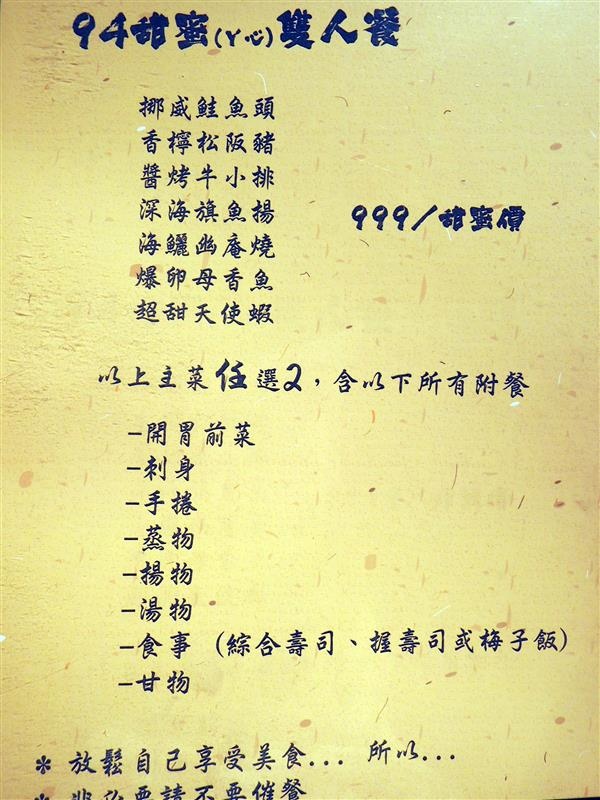 94甜蜜(ㄚ心)雙人餐
挪威鮭魚頭
香檸松阪豬
醬烤牛小排
深海旗魚揚
999/甜蜜價
海鱺幽庵燒
爆卵母香魚
超甜天使蝦
以上主菜任選2，含以下所有附餐
-開胃前菜
-刺身
-手捲
-蒸物
-揚物
-湯物
-食事 (綜合壽司、握壽司或梅子飯)
-甘物
* 放鬆自己享受美食... 所以...
* 非必要請不要催餐